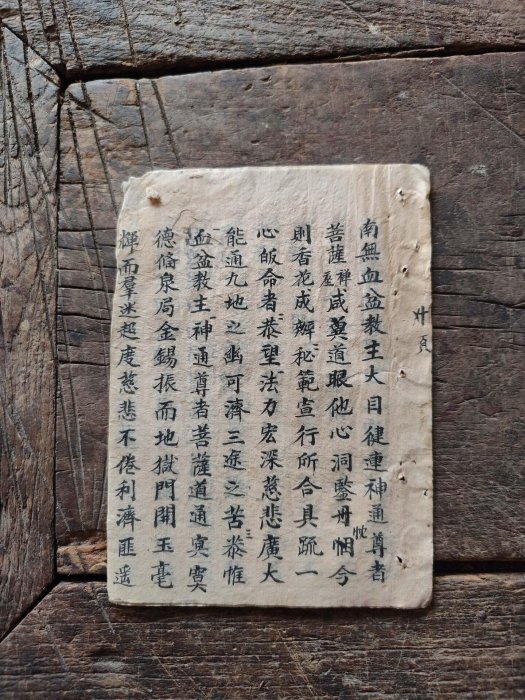 南無血盆教主大目犍連神通尊者
菩薩禪座咸奠道眼他心洞鑒丹悃忱今
則香花成辦秘範宣行所合具疏一
心皈命者恭望法力宏深慈悲廣大
能通九地之幽可濟三途之苦恭惟
血盆教主神通尊者菩薩道通㝠㝠
德俻泉局金錫振而地獄門開玉毫
輝而羣迷超度慈悲不倦利濟匪遥